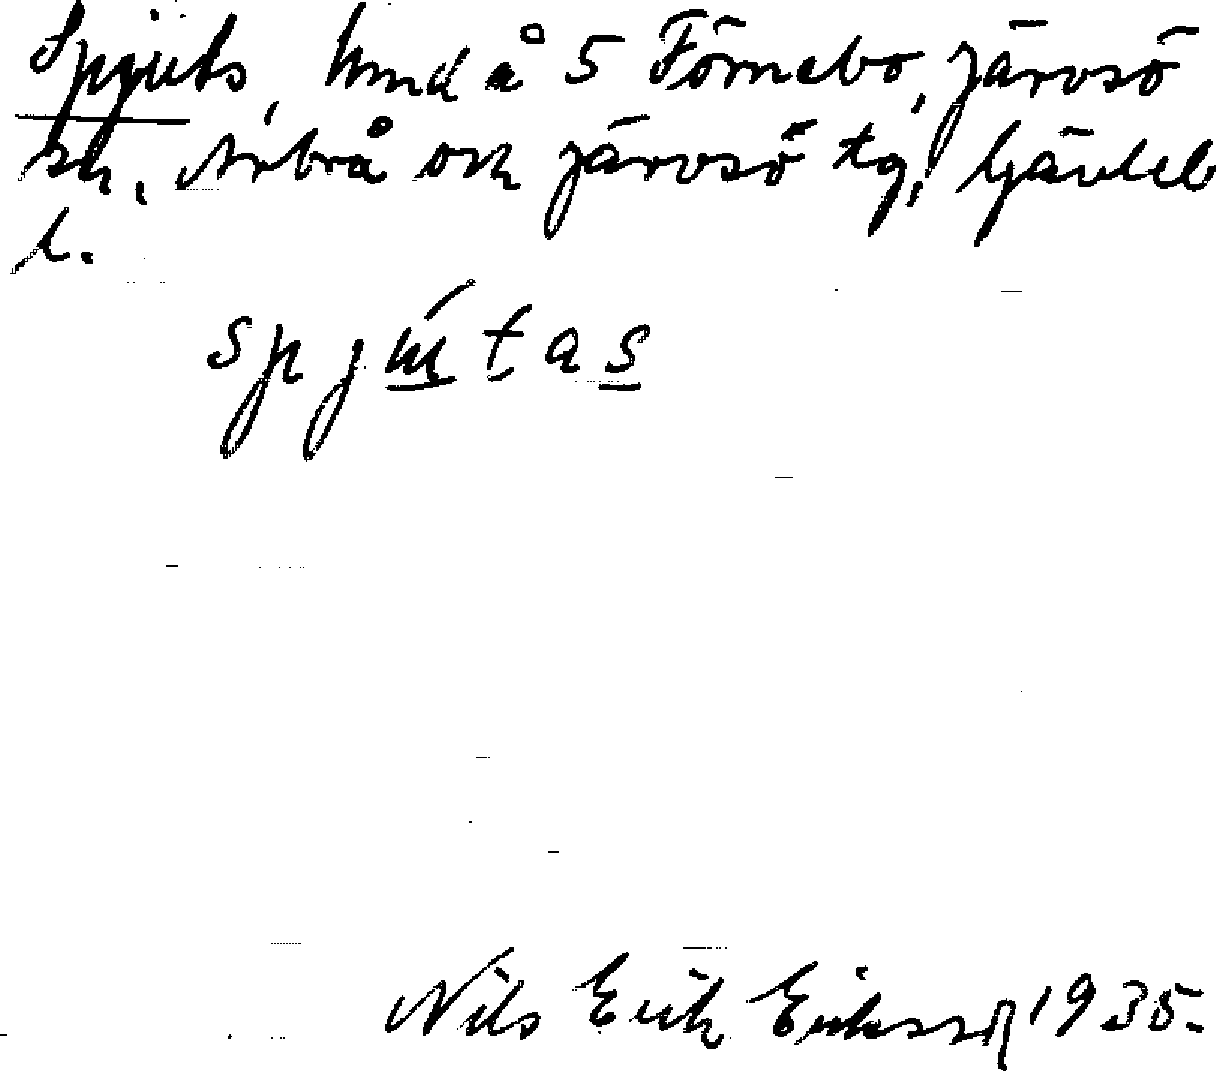 Spjuts, hmd å 5 Förnebo, Järvsö
sn, Arbrå och Järvsö tg, Gävleb
l.
spjutas
Nils Erik Eriksson 1935.